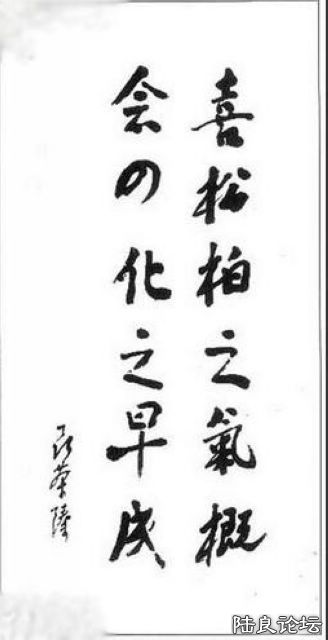 喜松柏之氣概
会四化之早成
聂荣臻
陆良论坛